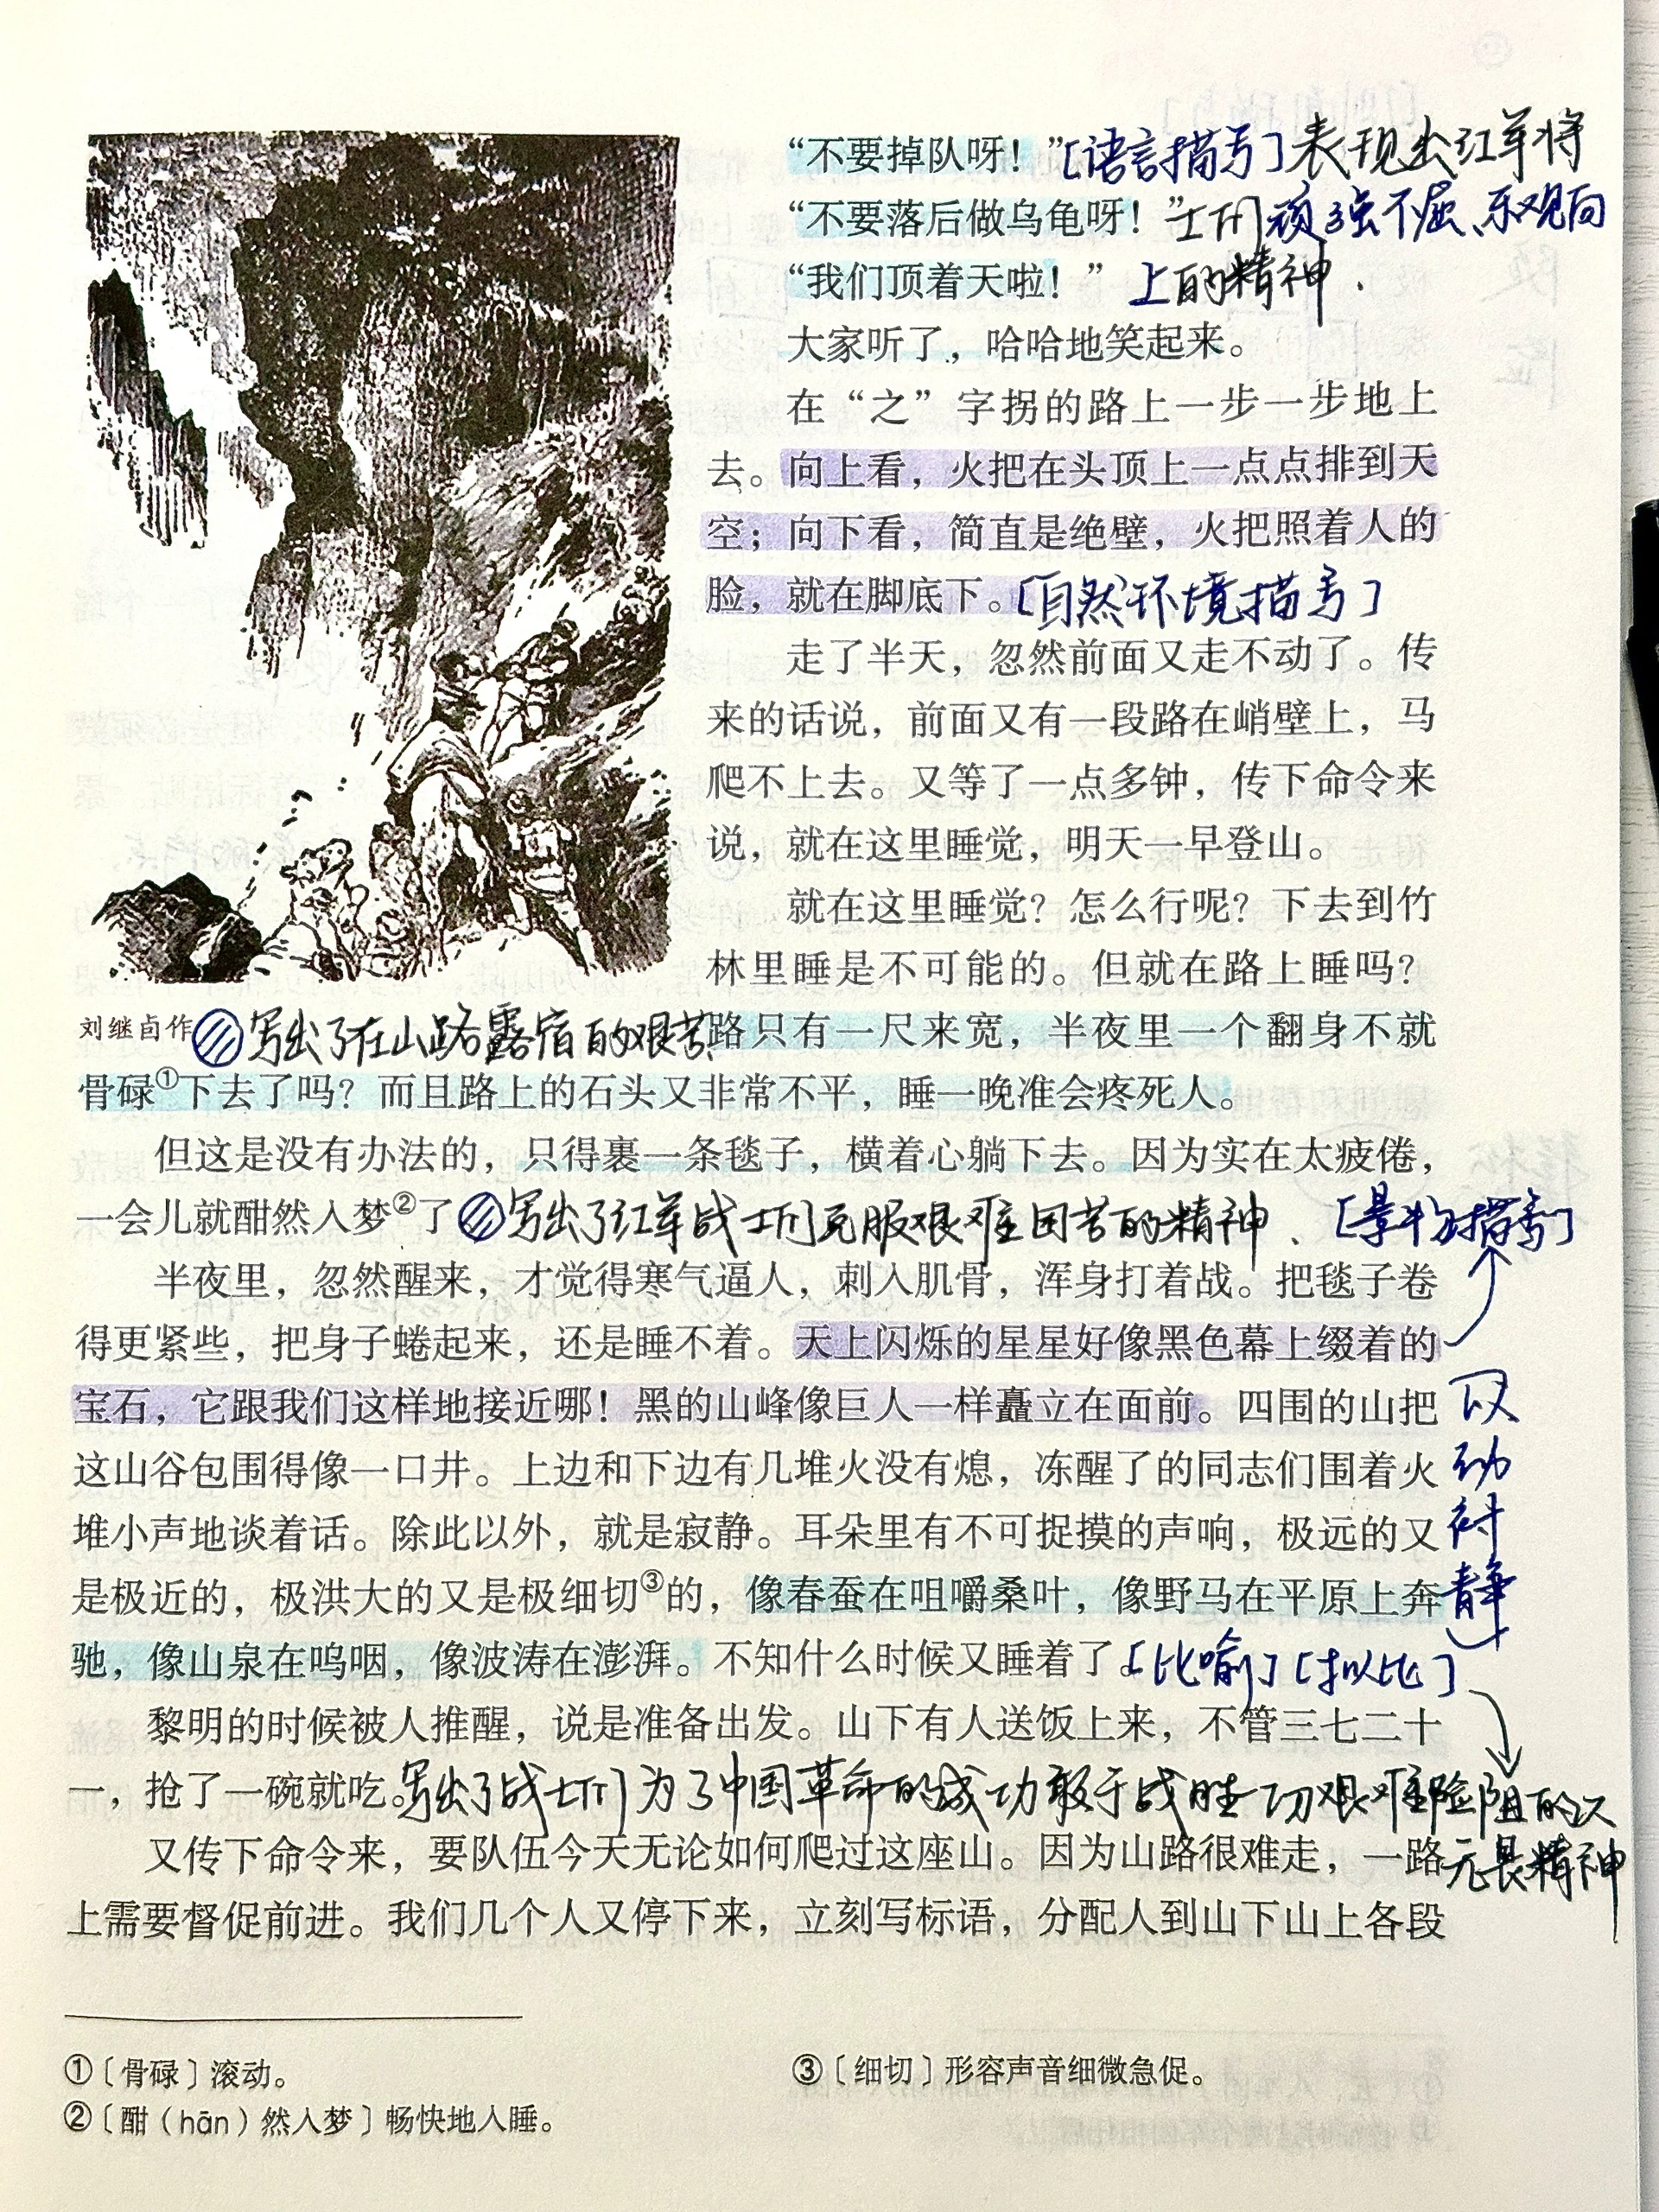 “不要掉队呀！”[语言描写]表现出红军将
“不要落后做乌龟呀！”士们顽强不屈、乐观向
“我们顶着天啦！” 上的精神.
大家听了，哈哈地笑起来。
在“之”字拐的路上一步一步地上
去。向上看，火把在头顶上一点点排到天
空；向下看，简直是绝壁，火把照着人的
脸，就在脚底下。[自然环境描写]
走了半天，忽然前面又走不动了。传
来的话说，前面又有一段路在峭壁上，马
爬不上去。又等了一点多钟，传下命令来
说，就在这里睡觉，明天一早登山。
就在这里睡觉？怎么行呢？下去到竹
林里睡是不可能的。但就在路上睡吗？
刘继卣作 写出了在山路露宿的艰苦 路只有一尺来宽，半夜里一个翻身不就
骨碌①下去了吗？而且路上的石头又非常不平，睡一晚准会疼死人。
但这是没有办法的，只得裹一条毯子，横着心躺下去。因为实在太疲倦，
一会儿就酣然入梦②了 写出了红军战士们克服艰难困苦的精神. [景物描写]
半夜里，忽然醒来，才觉得寒气逼人，刺入肌骨，浑身打着战。把毯子卷
得更紧些，把身子蜷起来，还是睡不着。天上闪烁的星星好像黑色幕上缀着的
宝石，它跟我们这样地接近哪！黑的山峰像巨人一样矗立在面前。四围的山把
这山谷包围得像一口井。上边和下边有几堆火没有熄，冻醒了的同志们围着火
堆小声地谈着话。除此以外，就是寂静。耳朵里有不可捉摸的声响，极远的又
是极近的，极洪大的又是极细切③的，像春蚕在咀嚼桑叶，像野马在平原上奔
驰，像山泉在呜咽，像波涛在澎湃。不知什么时候又睡着了。[比喻][拟比]
以
动
衬
静
黎明的时候被人推醒，说是准备出发。山下有人送饭上来，不管三七二十
一，抢了一碗就吃。写出了战士们为了中国革命的成功敢于战胜一切艰难险阻的大
无畏精神
又传下命令来，要队伍今天无论如何爬过这座山。因为山路很难走，一路
上需要督促前进。我们几个人又停下来，立刻写标语，分配人到山下山上各段
①〔骨碌〕滚动。
②〔酣（hān）然入梦〕畅快地入睡。
③〔细切〕形容声音细微急促。